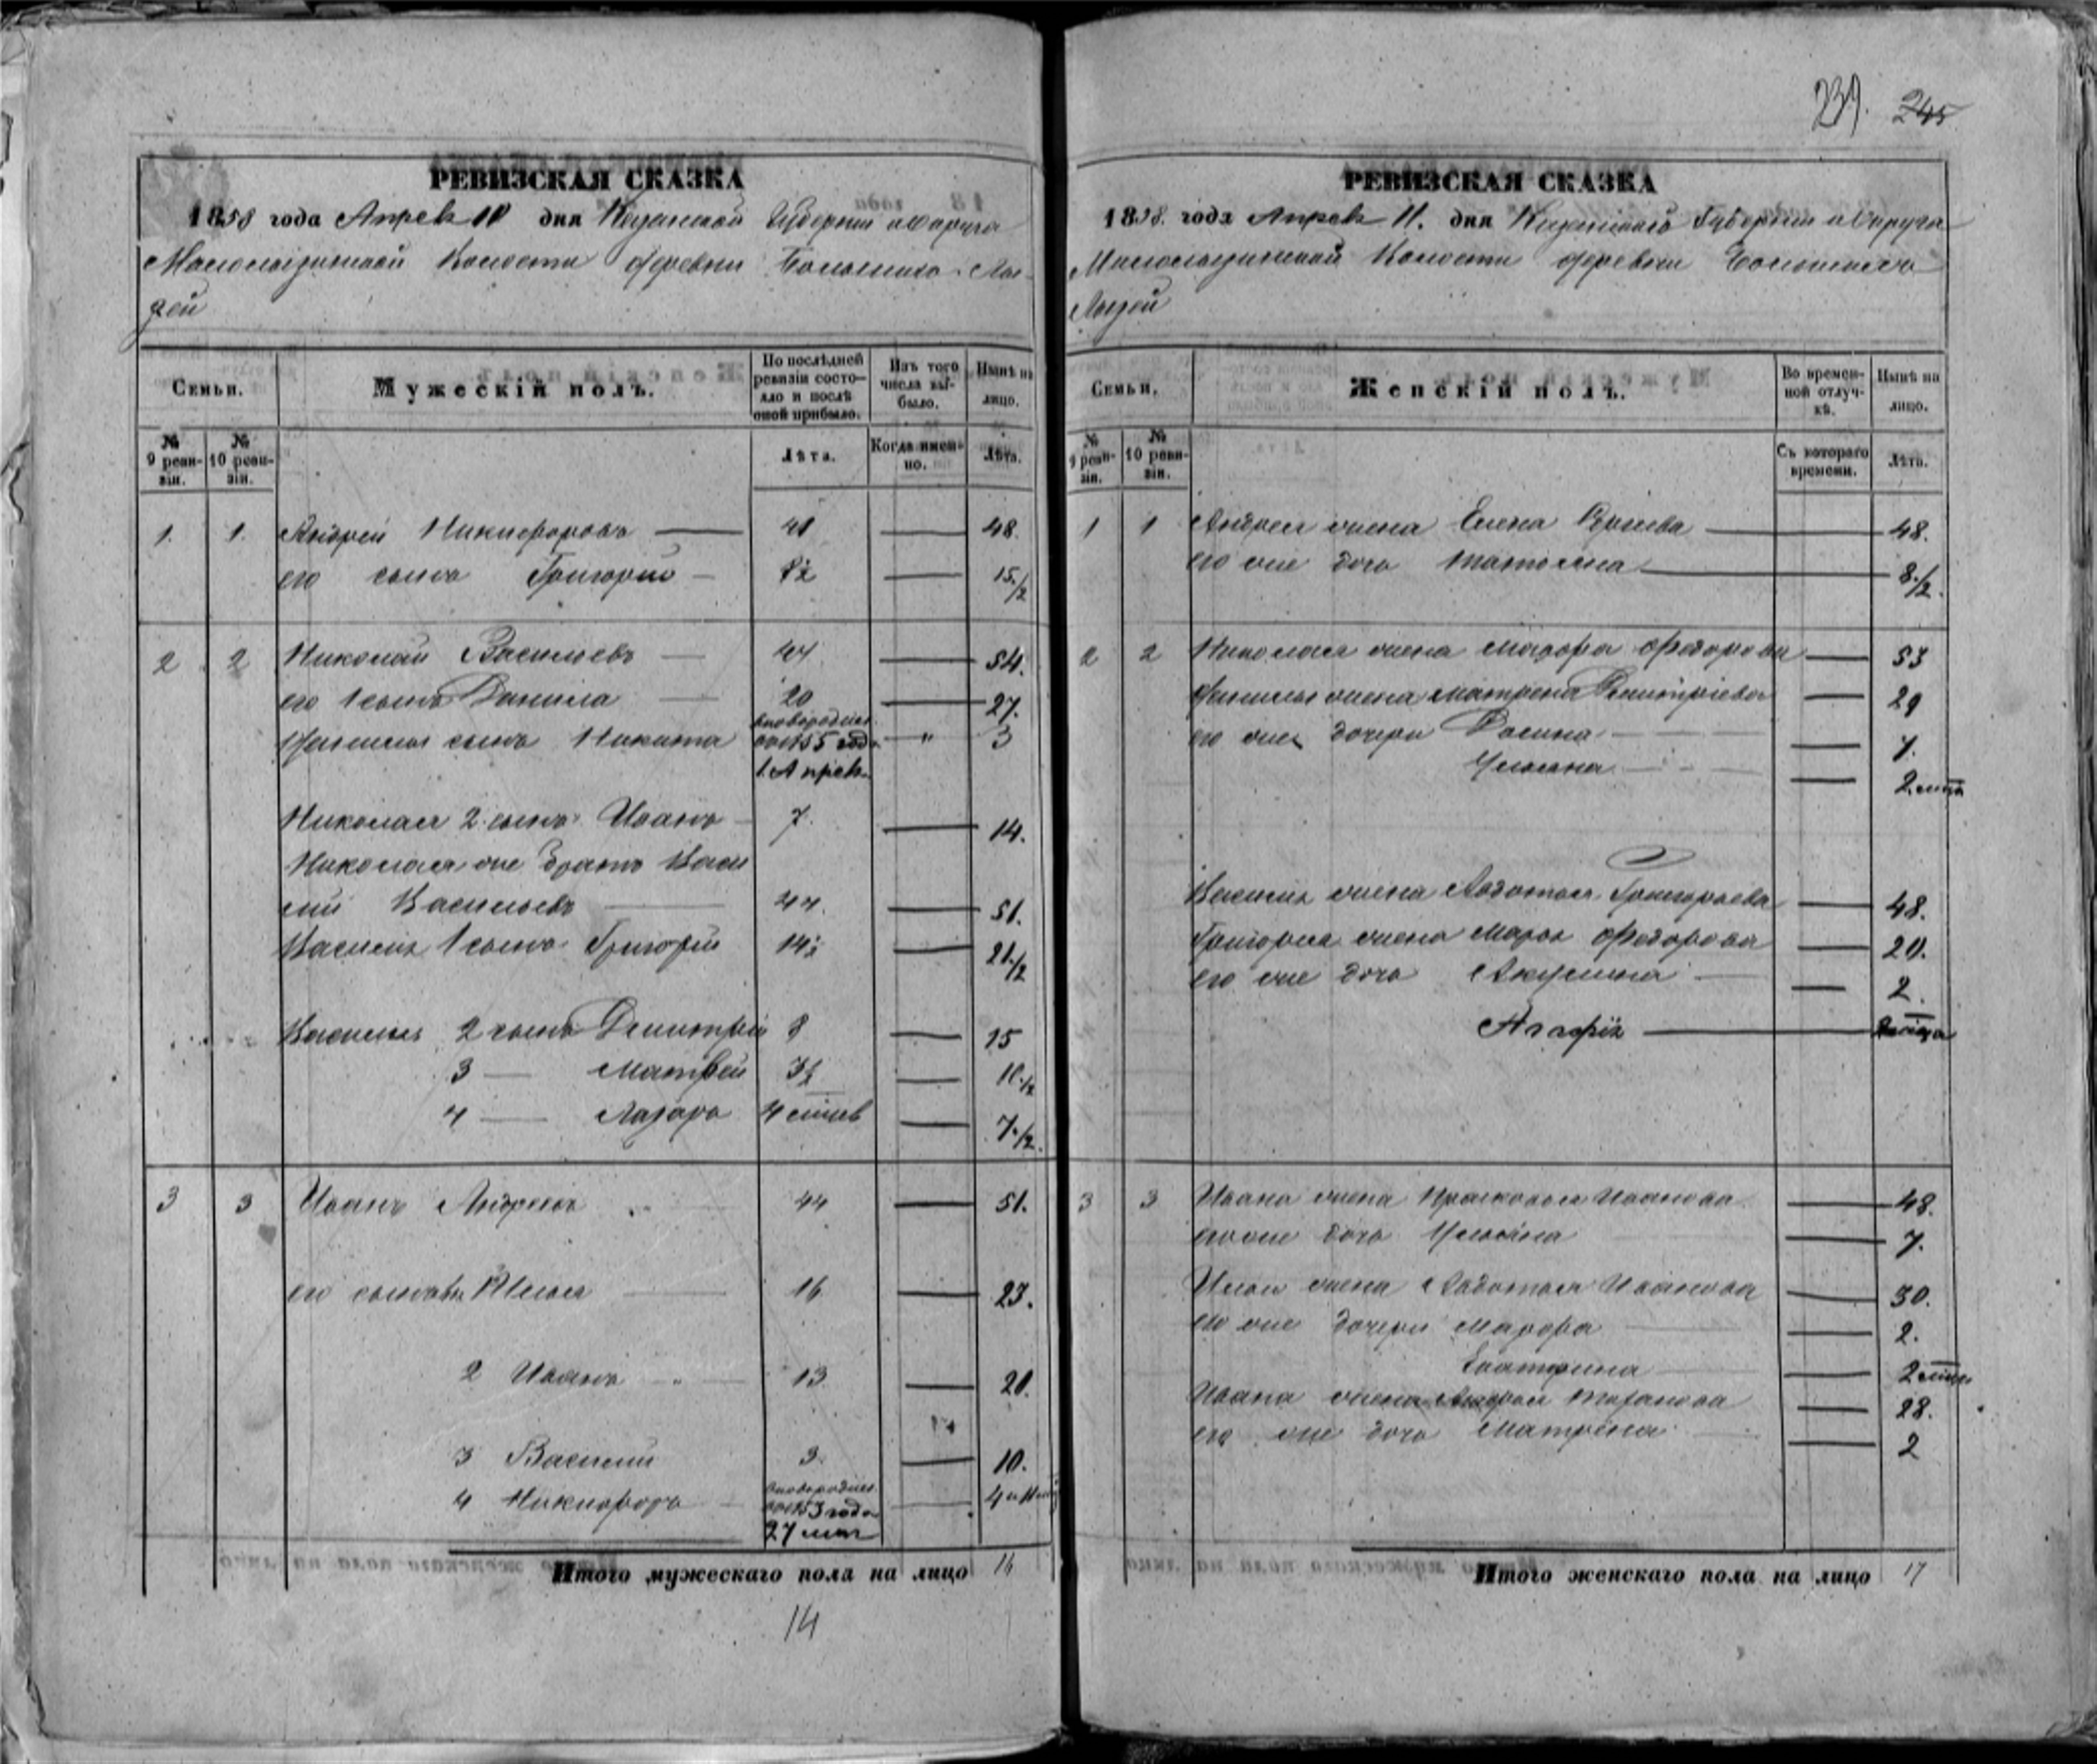 239. 245
РЕВИЗСКАЯ СКАЗКА
1858 года Апреля 11 дня Казанской Губернии и Округа
волости деревни
РЕВИЗСКАЯ СКАЗКА
1858. года Апреля 11. дня Казанской Губернии и Округа
Волости деревни
Семьи.
Мужескій полъ.
По послѣдней ревизіи состояло и послѣ оной прибыло.
Изъ того числа выбыло.
Нынѣ на лицо.
№ 9 ревизіи.
№ 10 ревизіи.
Лѣта.
Когда именно.
Лѣта.
1. 1. Андрей Никифоровъ 41 48.
его сынъ Григорий 8½ 15.½
2 2 Николай Васильевъ 47 54.
его 1 сынъ Данила 20 27.
Данилы сынъ Никита 1855 года " 3
1 Апреля
Николая 2 сынъ Иванъ 7. 14.
Николая же братъ Васи
лий Васильевъ 44. 51.
Василья 1 сынъ Григорий 14½ 21.½
Василья 2 сынъ Дмитрій 8 15
3 — Матвей 3½ 10.½
4 — Лазарь 7.½
3 3 Иванъ Андреевъ 44 51.
его сыновья 1 Илья 16 23.
2 Иванъ 13 20.
3 Василий 3. 10.
4 Никифоръ 1853 года
27 мая
Итого мужескаго пола на лицо 16
14
Семьи.
Женскій полъ.
Во временной отлучкѣ.
Нынѣ на лицо.
№ 9 ревизіи.
№ 10 ревизіи.
Съ котораго времени.
Лѣта.
1 1 Андрея жена Елена 48.
его же дочь Татьяна 8.½
2 2 Николая жена Федорова 53
Данилы жена Матрена Дмитріева 29
его же дочери 7.
Ульяна 2 мца
Василья жена Авдотья Григорьева 48.
Григорья жена Марья Федорова 20.
его же дочь Акулина 2.
Агафія
3 3 Ивана жена Прасковья Иванова 48.
его же дочь Ульяна 7.
Ильи жена Авдотья Иванова 30.
его же дочери 2.
Екатерина 2 мца
Ивана жена 28.
его же дочь Матрена 2
Итого женскаго пола на лицо 17